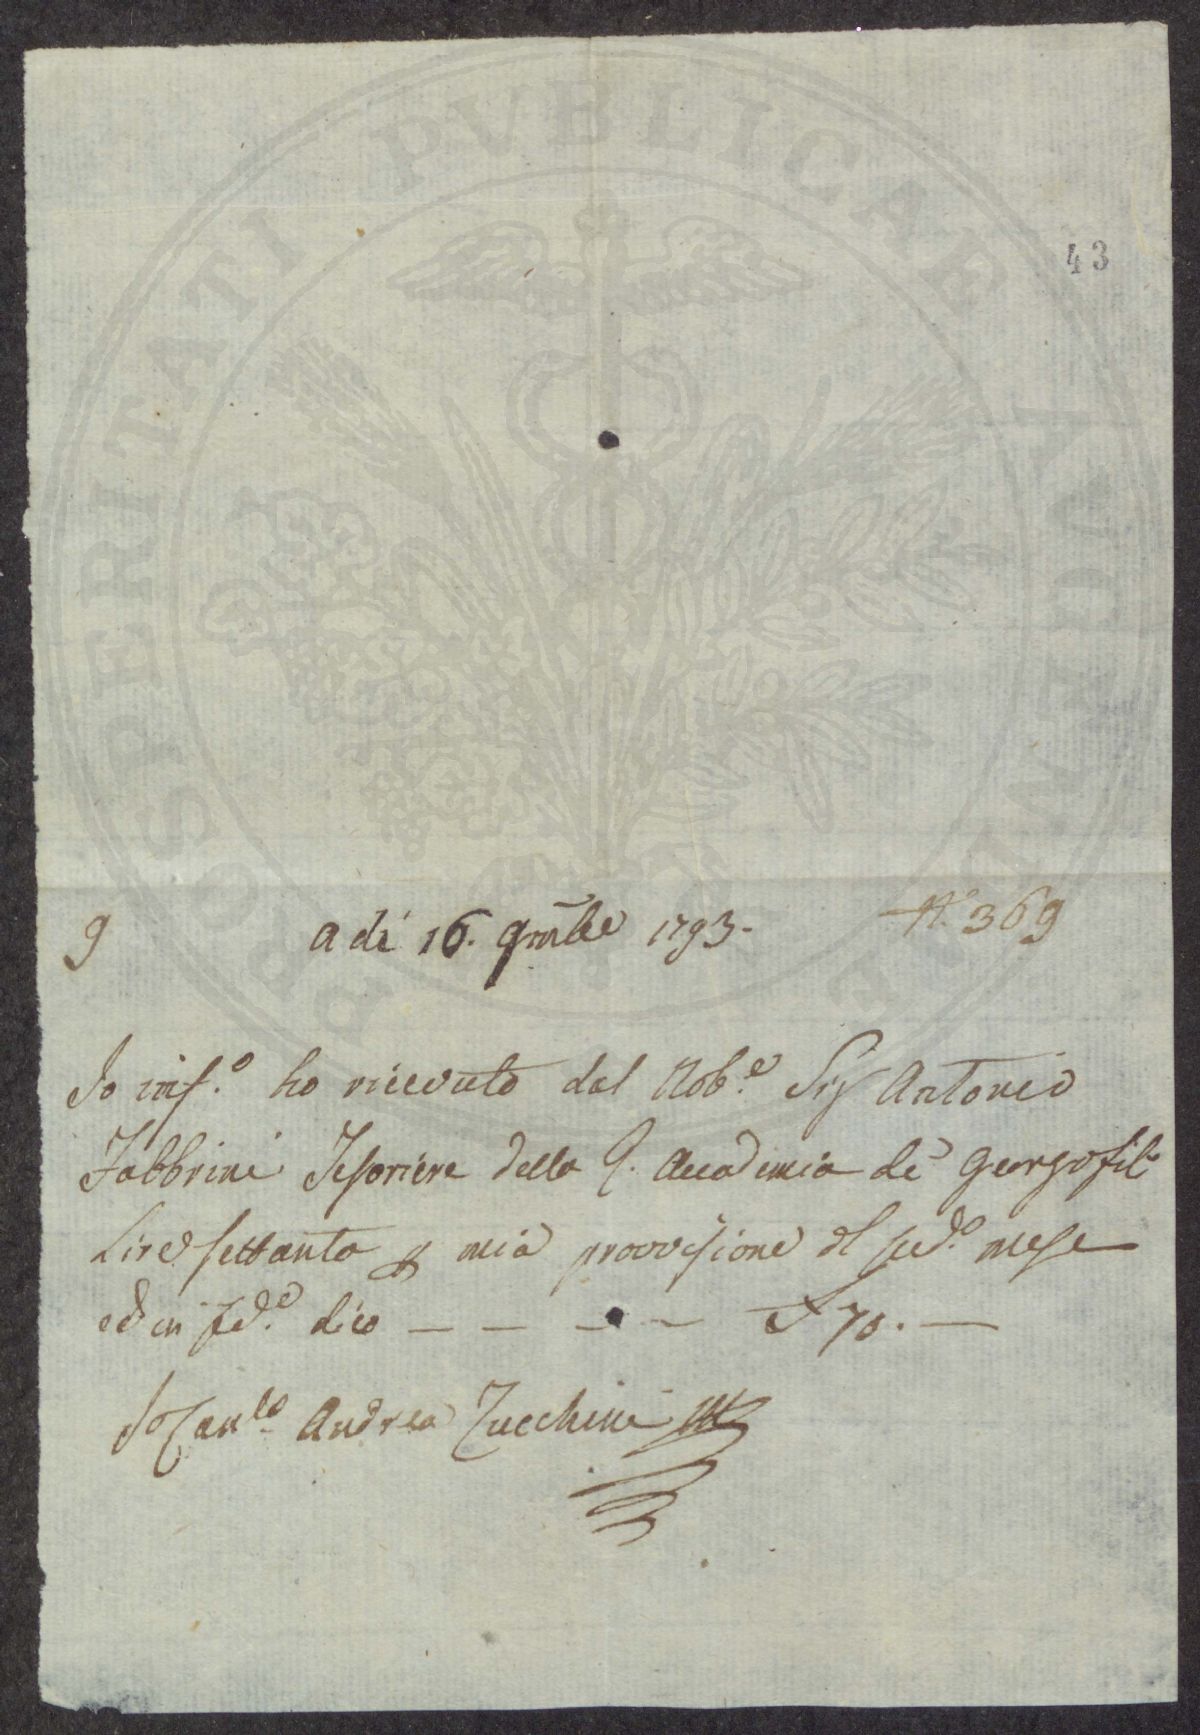 PROSPERITATI PUBLICAE AUGENDAE
43
9
A dì 16. 9mbre 1793.
N.° 369
Io inf.o ho ricevuto dal Nob.e Sig Antonio
Fabbrini Tesoriere della R. Accademia de Georgofili
Lire settanta p mia provvisione del sud.o mese
ed in fed.e dico — — — — £ 70. —
Io Can.co Andrea Zucchini